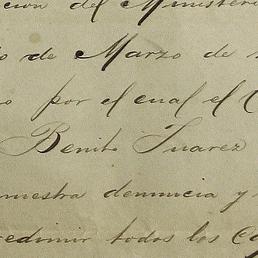 cion del Ministeri
o de Marzo de
o por el cual el C
Benito Juarez
nuestra denuncia y
redimir todos los Ca